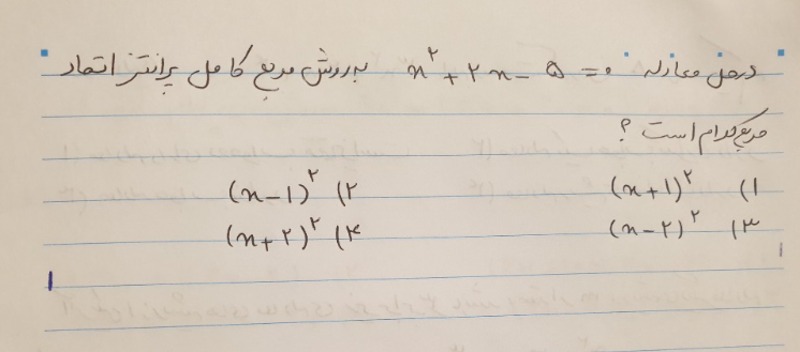 در حل معادله x² + ۲x - ۵ = ۰ به روش مربع کامل پرانتز اتحاد
مربع کدام است ؟
۱) (x+۱)² ۲) (x-۱)²
۳) (x-۲)² ۴) (x+۲)²